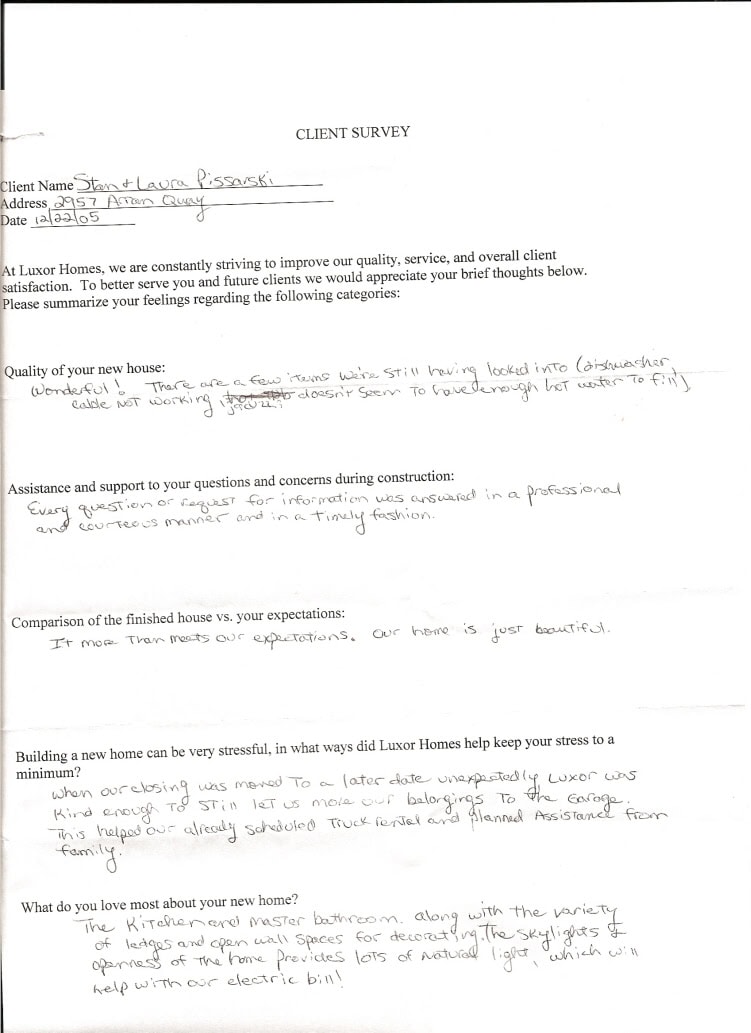 CLIENT SURVEY
Client Name Stan + Laura Pissarski
Address 2957 Arran Quay
Date 12/22/05
At Luxor Homes, we are constantly striving to improve our quality, service, and overall client
satisfaction. To better serve you and future clients we would appreciate your brief thoughts below.
Please summarize your feelings regarding the following categories:
Quality of your new house:
Wonderful! There are a few items we're still having looked into (dishwasher,
cable not working, doesn't seem to have enough hot water to fill)
jacuzzi
Assistance and support to your questions and concerns during construction:
Every question or request for information was answered in a professional
and courteous manner and in a timely fashion.
Comparison of the finished house vs. your expectations:
It more than meets our expectations. Our home is just beautiful.
Building a new home can be very stressful, in what ways did Luxor Homes help keep your stress to a
minimum?
When our closing was moved to a later date unexpectedly Luxor was
kind enough to still let us move our belongings to the garage.
This helped our already scheduled truck rental and planned assistance from
family.
What do you love most about your new home?
The kitchen and master bathroom. along with the variety
of ledges and open wall spaces for decorating. The skylights &
openness of the home provides lots of natural light, which will
help with our electric bill!